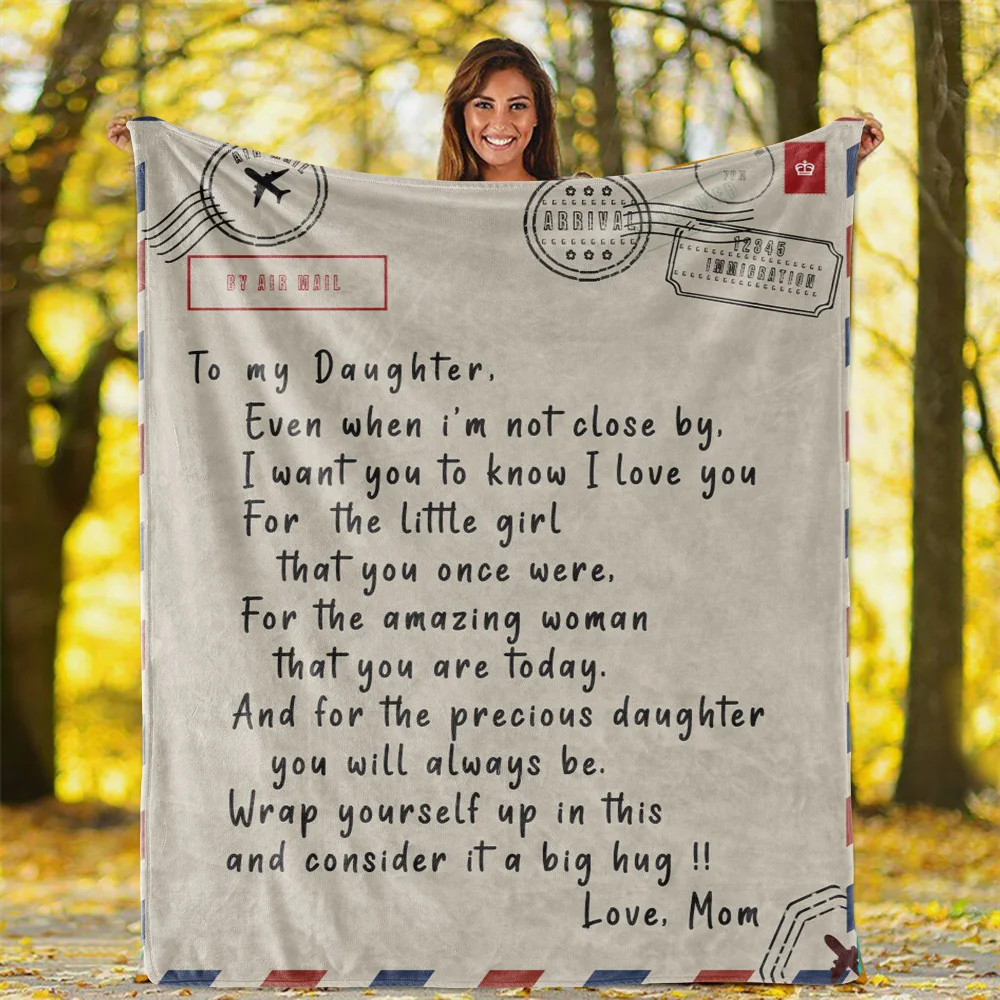 AIR MAIL
ARRIVAL
12345
IMMIGRATION
BY AIR MAIL
To my Daughter,
Even when i'm not close by,
I want you to know I love you
For the little girl
that you once were,
For the amazing woman
that you are today.
And for the precious daughter
you will always be.
Wrap yourself up in this
and consider it a big hug !!
Love, Mom